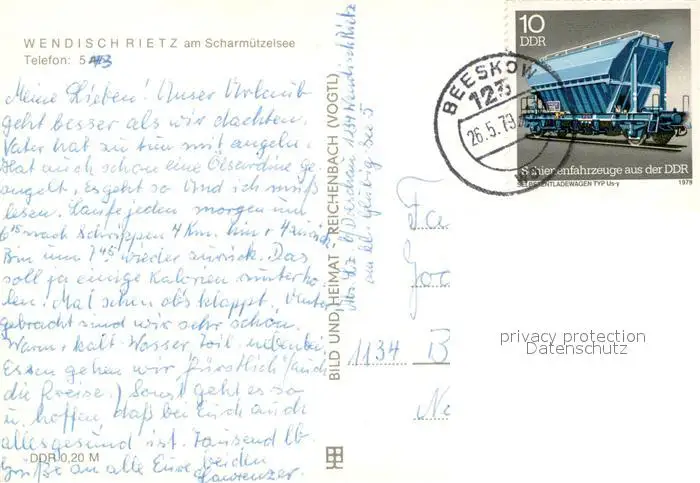 WENDISCH RIETZ am Scharmützelsee
Telefon: 5
Meine Lieben! Unser Urlaub
geht besser als wir dachten.
Vater hat zu tun mit angeln.
Hat auch schon eine Ölsardine ge-
angelt, es geht so. Und ich muß
lesen. Laufe jeden morgen um
6 15 nach Schrippen 4 Km. hin + 4 zurück.
Bin um 7 45 wieder zurück. Das
soll ja einige Kalorien runterho-
len. Mal sehen ob's klappt. Unter-
gebracht sind wir sehr schön.
Warm + kalt Wasser, nebenbei
Essen gehen wir fürstlich (auch
die Preise.) Sonst geht es so
u. hoffen daß bei Euch auch
alles gesund ist. Tausend lb.
Grüße an alle Eure beiden
DDR 0,20 M
BILD UND HEIMAT, REICHENBACH (VOGTL)
Wendisch Rietz
am
10
DDR
Schienenfahrzeuge aus der DDR
SELBSTENTLADEWAGEN TYP Us-y
1979
BEESKOW
123
26.5.79
1134 B
privacy protection
Datenschutz